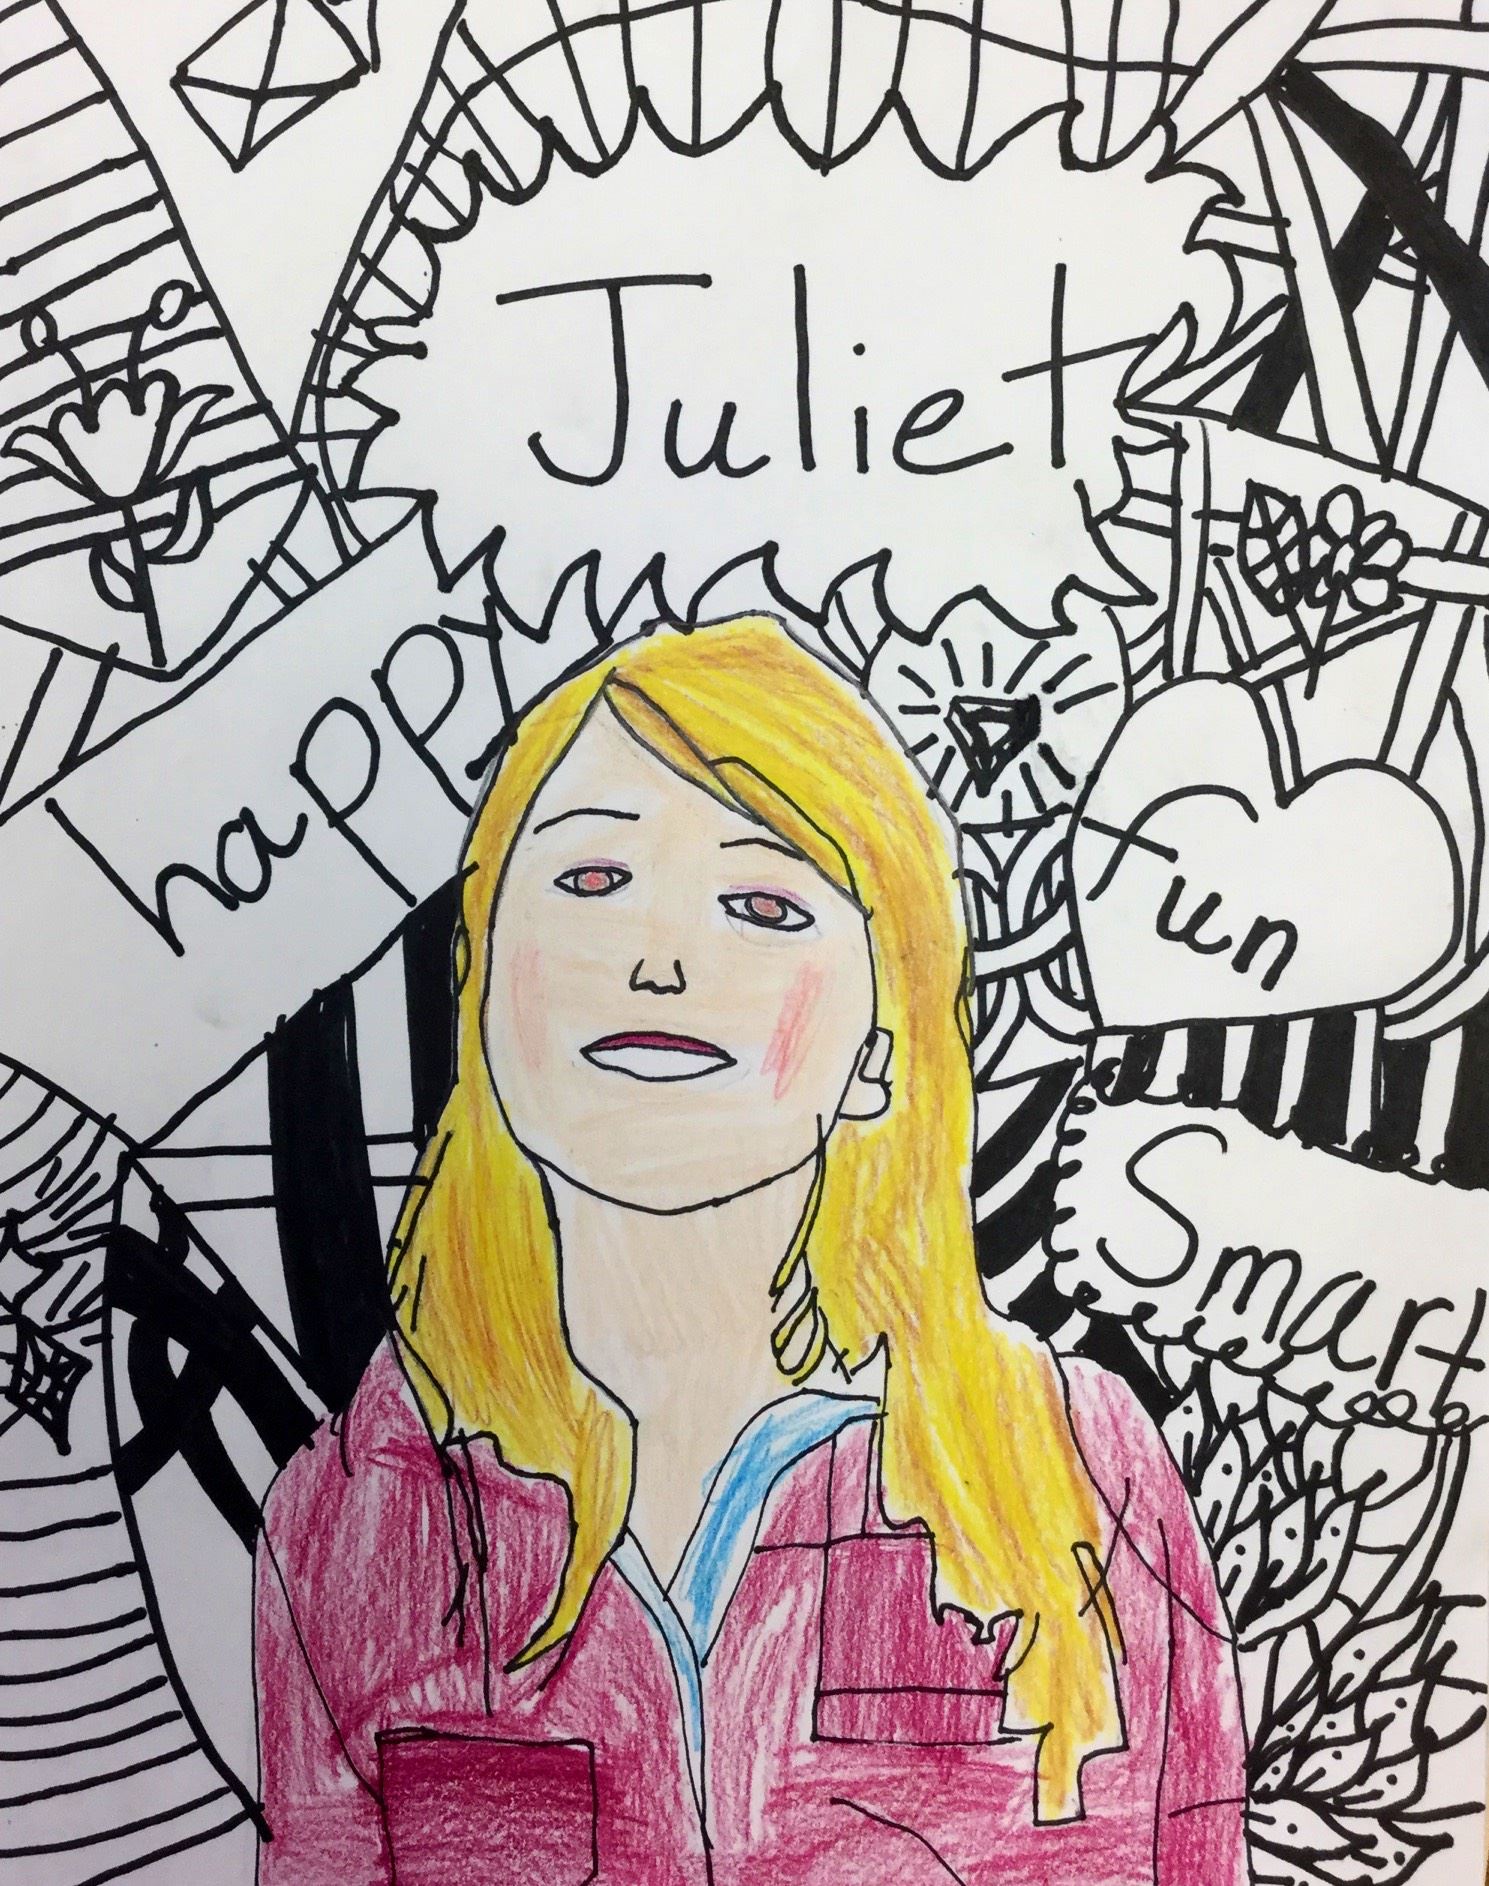 Juliet
happy
fun
Smart